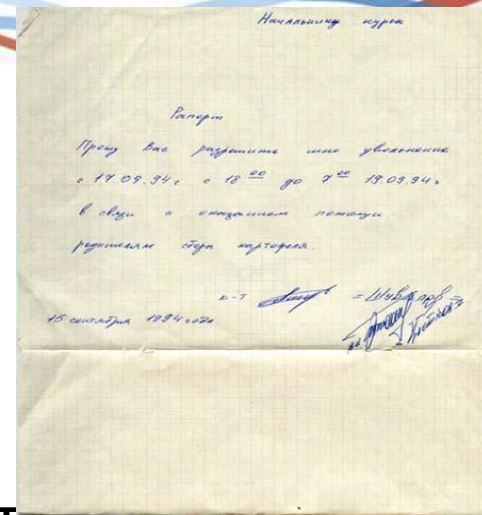 Начальнику курса
Рапорт
Прошу Вас разрешить мне увольнение
с 17.09.94г с 18 00 до 7 00 19.09.94г
в связи с оказанием помощи
родителям сбора картофеля.
к-т =Шувалов=
15 сентября 1994 года